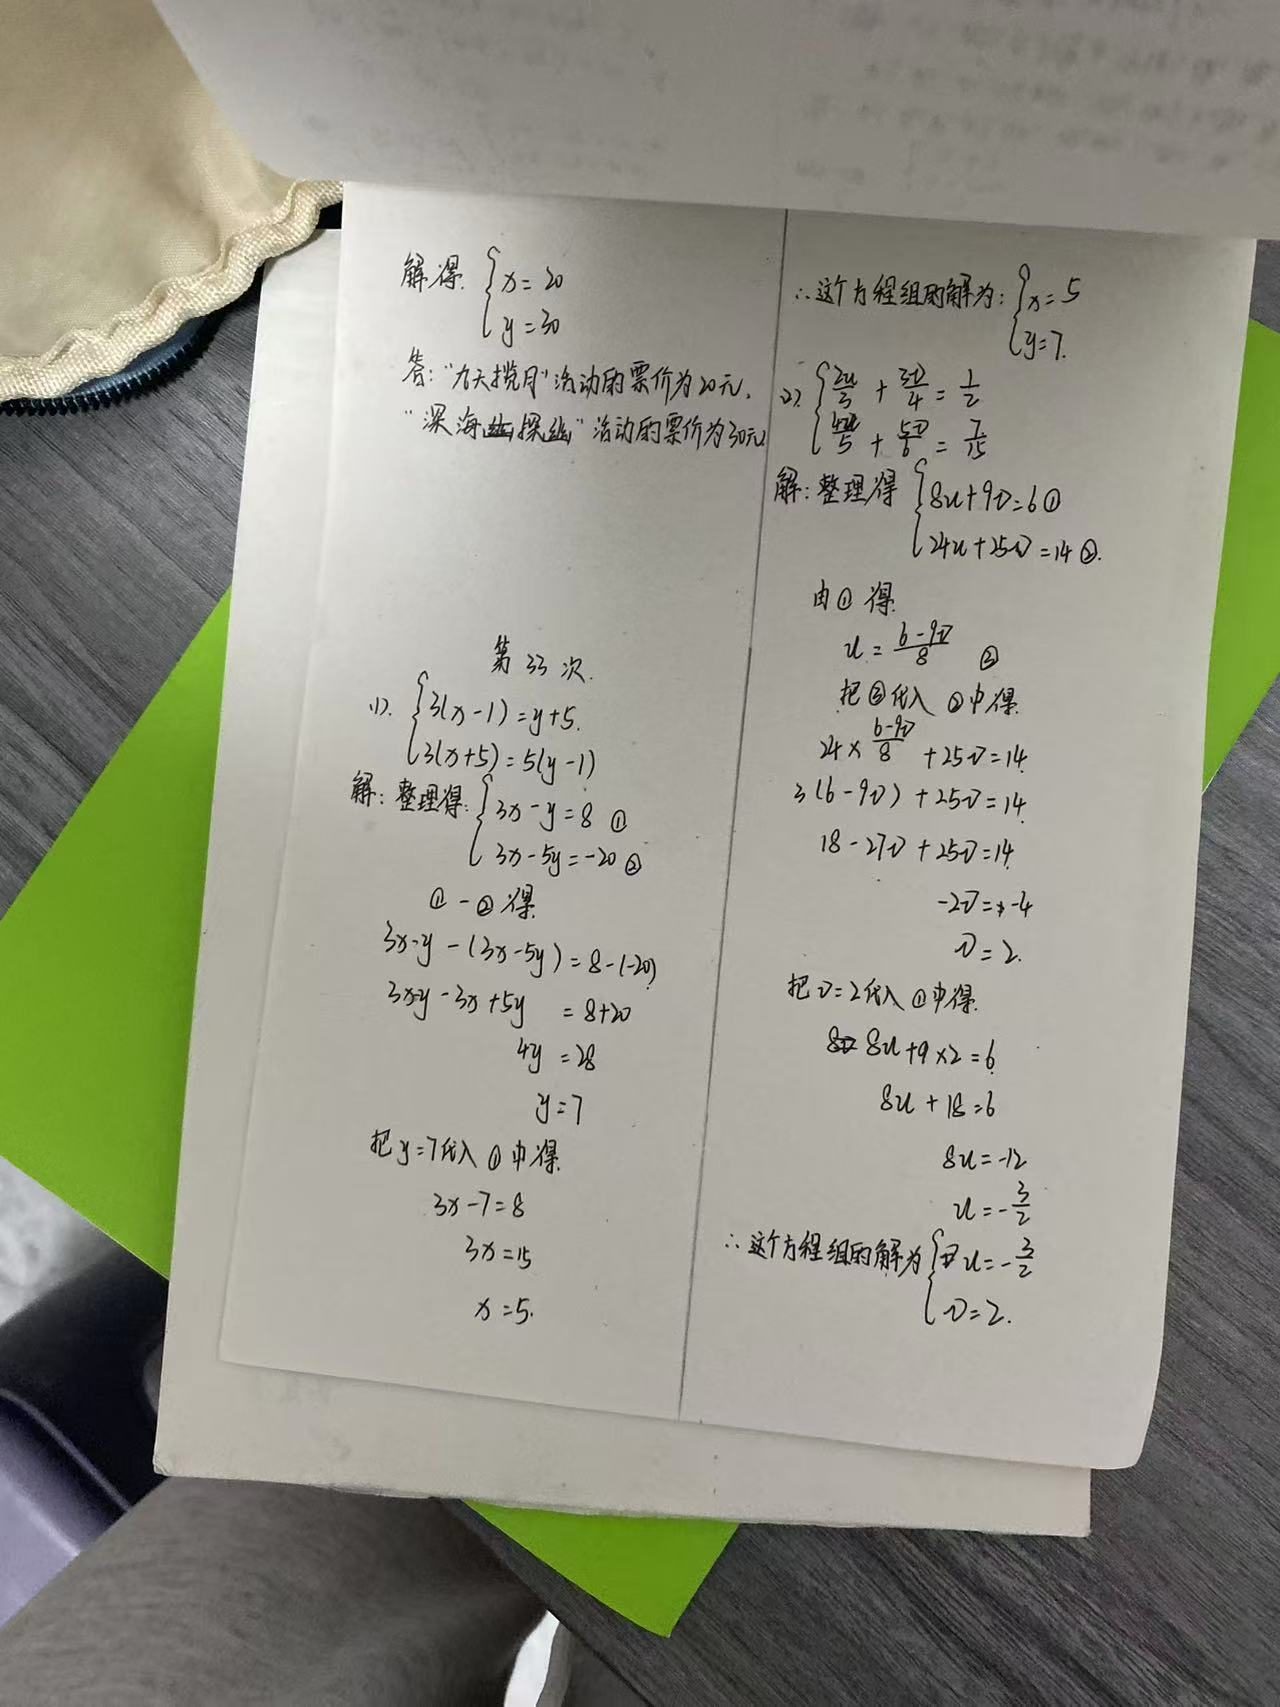 解得 { x = 20
y = 30
答：“九天揽月”活动的票价为20元，
“深海探幽”活动的票价为30元
第33次.
(1). { 3(x-1)=y+5.
3(x+5)=5(y-1)
解：整理得：{ 3x-y=8 ①
3x-5y=-20 ②
①-②得
3x-y-(3x-5y)=8-(-20)
3x-y-3x+5y =8+20
4y=28
y=7
把y=7代入①中得
3x-7=8
3x=15
x=5.
∴这个方程组的解为：{ x=5
y=7.
(2). { 2u/3 + 3v/4 = 1/2
4u/5 + 5v/6 = 7/15
解：整理得 { 8u+9v=6 ①
24u+25v=14 ②.
由①得
u = (6-9v)/8 ③
把③代入②中得
24×(6-9v)/8 +25v=14
3(6-9v)+25v=14
18-27v+25v=14
-2v=-4
v=2.
把v=2代入①中得.
8u+9×2=6
8u+18=6
8u=-12
u=-3/2
∴这个方程组的解为 { u=-3/2
v=2.